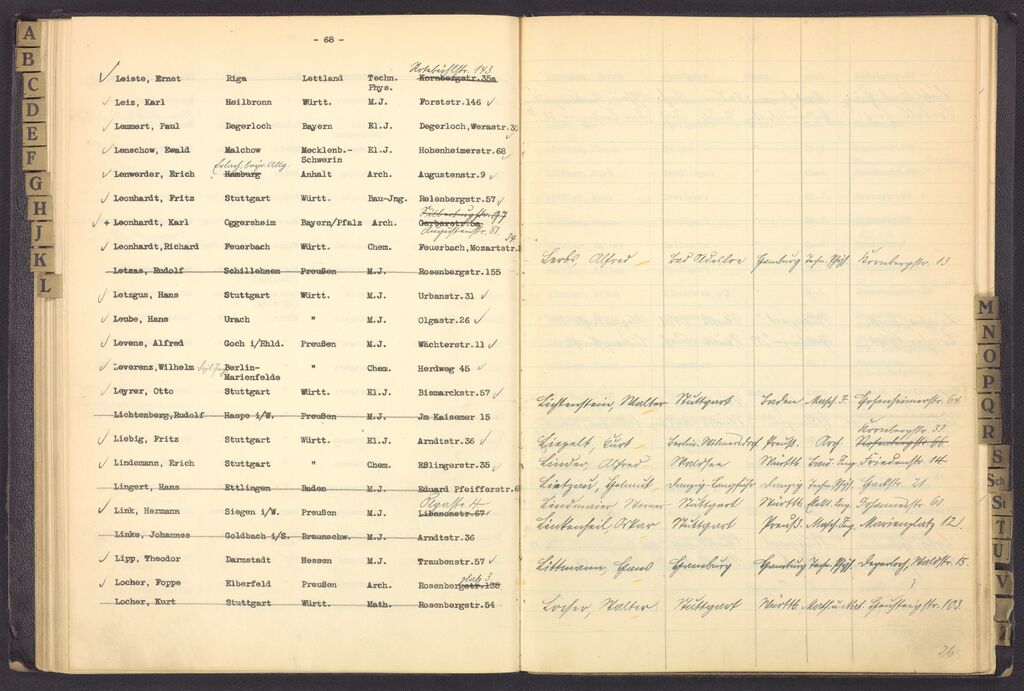 A
B
C
D
E
F
G
H
J
K
L
- 68 -
Rotebühlstr. 143
Leiste, Ernst Riga Lettland Techn. Kornbergstr.35a
Phys.
Leiz, Karl Heilbronn Württ. M.J. Forststr.146
Lemmert, Paul Degerloch Bayern El.J. Degerloch,Werastr.30
Lenschow, Ewald Malchow Mecklenb.- El.J. Hohenheimerstr.68
Schwerin
Lenwerder, Erich Hamburg Anhalt Arch. Augustenstr.9
Leonhardt, Fritz Stuttgart Württ. Bau-Jng. Relenbergstr.57
Silberburgstr. 97
+ Leonhardt, Karl Oggersheim Bayern/Pfalz Arch. Gerberstr.5a
Augustenstr. 81.
Leonhardt,Richard Feuerbach Württ. Chem. Feuerbach,Mozartstr. 34
Letzas, Rudolf Schillehnen Preußen M.J. Rosenbergstr.155
Letzgus, Hans Stuttgart Württ. M.J. Urbanstr.31
Leube, Hans Urach " M.J. Olgastr.26
Levens, Alfred Goch i/Rhld. Preußen M.J. Wächterstr.11
Leverenz,Wilhelm Berlin- " Chem. Herdweg 45
Marienfelde
Leyrer, Otto Stuttgart Württ. El.J. Bismarckstr.57
Lichtenberg,Rudolf Haspe i/W. Preußen M.J. Jm Kaisemer 15
Liebig, Fritz Stuttgart Württ. El.J. Arndtstr.36
Lindemann, Erich Stuttgart " Chem. Eßlingerstr.35
Lingert, Hans Ettlingen Baden M.J. Eduard Pfeifferstr.6
Olgastr. 4
Link, Hermann Siegen i/W. Preußen M.J. Libanonstr.67
Linke, Johannes Goldbach i/S. Braunschw. M.J. Arndtstr.36
Lipp, Theodor Darmstadt Hessen M.J. Traubenstr.57
platz 3.
Locher, Foppe Elberfeld Preußen Arch. Rosenbergstr.138
Locher, Kurt Stuttgart Württ. Math. Rosenbergstr.54
Lerbs, Alfred Bad Oldesloe Hamburg Techn. Phys. Kornbergstr. 13
Lichtenstein, Walter Stuttgart Baden Masch. J. Hohenheimerstr. 64
Kornbergstr. 33
Liepelt, Curt Berlin-Wilmersdorf Preuß. Arch. Rosenbergstr. 66
Linder, Alfred Waldsee Württb. Bau-Ing. Friedenstr. 14
Lietzau, Helmut Danzig-Langfuhr Danzig Techn. Phys. Hackstr. 21
Lindmaier, Werner Stuttgart Württb. Elektr. Ing. Johannesstr. 61
Linkenheil, Oskar Stuttgart Preuß. Masch. Ing. Marienplatz 12.
Littmann, Hans Hamburg Hamburg Techn. Phys. Degerloch, Waldstr. 15.
Locher, Walter Stuttgart Württb. Math. u. Nat. Hausteigstr. 103.
26
M
N
O
P
Q
R
S
Sch
St
T
U
V